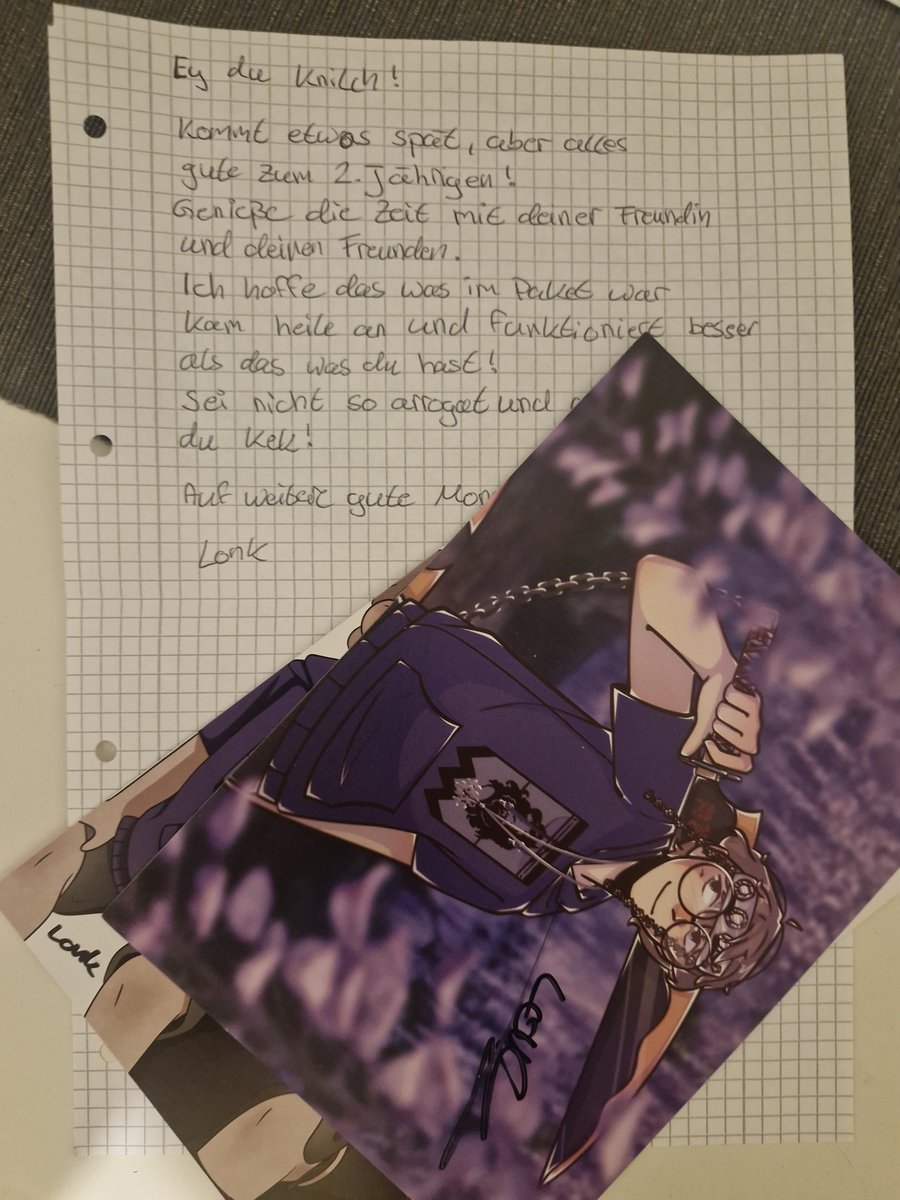 Ey du Knilch!
Kommt etwas spät, aber alles
gute zum 2. Jährigen!
Genieße die Zeit mit deiner Freundin
und deinen Freunden.
Ich hoffe das was im Paket war
kam heile an und funktioniert besser
als das was du hast!
Sei nicht so arrogat und
du Kek!
Auf weitere gute Mon
Lonk
Lonk
Lonk